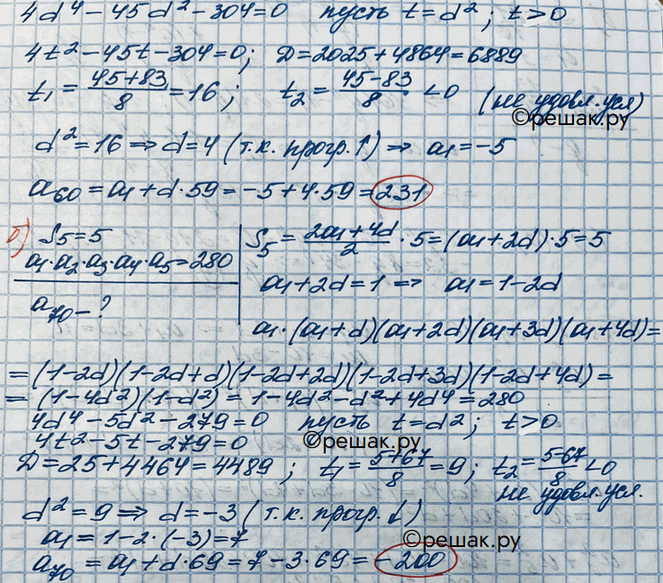 4d⁴-45d²-304=0 пусть t=d²; t>0
4t²-45t-304=0; D=2025+4864=6889
t₁=(45+83)/8=16; t₂=(45-83)/8<0 (не удовл. усл)
©решак.ру
d²=16⇒d=4 (т.к. прогр.↑)⇒ a₁=-5
a₆₀=a₁+d·59=-5+4·59=231
б) S₅=5
a₁·a₂·a₃·a₄·a₅=280
a₇₀-?
S₅=(2a₁+4d)/2·5=(a₁+2d)·5=5
a₁+2d=1⇒ a₁=1-2d
a₁·(a₁+d)(a₁+2d)(a₁+3d)(a₁+4d)=
=(1-2d)(1-2d+d)(1-2d+2d)(1-2d+3d)(1-2d+4d)=
=(1-4d²)(1-d²)=1-4d²-d²+4d⁴=280
4d⁴-5d²-279=0 пусть t=d²; t>0
4t²-5t-279=0
©решак.ру
D=25+4464=4489; t₁=(5+67)/8=9; t₂=(5-67)/8<0
не удовл. усл.
d²=9⇒d=-3 (т.к. прогр.↓)
a₁=1-2·(-3)=7
©решак.ру
a₇₀=a₁+d·69=7-3·69=-200